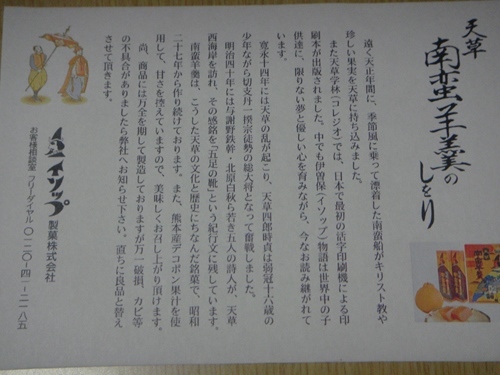 天草
南蛮羊羹の
しをり
遠く天正年間に、季節風に乗って漂着した南蛮船がキリスト教や
珍しい果実を天草に持ち込みました。
また天草学林（コレジオ）では、日本で最初の活字印刷機による印
刷本が出版されました。中でも伊曽保（イソップ）物語は世界中の子
供達に、限りない夢と優しい心を育みながら、今なお読み継がれて
います。
寛永十四年には天草の乱が起こり、天草四郎時貞は弱冠十六歳の
少年ながら切支丹一揆宗徒勢の総大将となって奮戦しました。
明治四十年には与謝野鉄幹・北原白秋ら若き五人の詩人が、天草
西海岸を訪れ、その感銘を「五足の靴」という紀行文に残しています。
南蛮羊羹は、こうした天草の文化と歴史にちなんだ銘菓で、昭和
二十七年から作り続けております。また、熊本産デコポン果汁を使
用して、甘さを控えていますので、美味しくお召し上がり頂けます。
尚、商品には万全を期して製造しておりますが万一破損、カビ等
の不具合がありましたら弊社へお知らせ下さい。直ちに良品と替え
させて頂きます。
イソップ製菓株式会社
お客様相談室 フリーダイヤル 〇一二〇-四一-二一八五